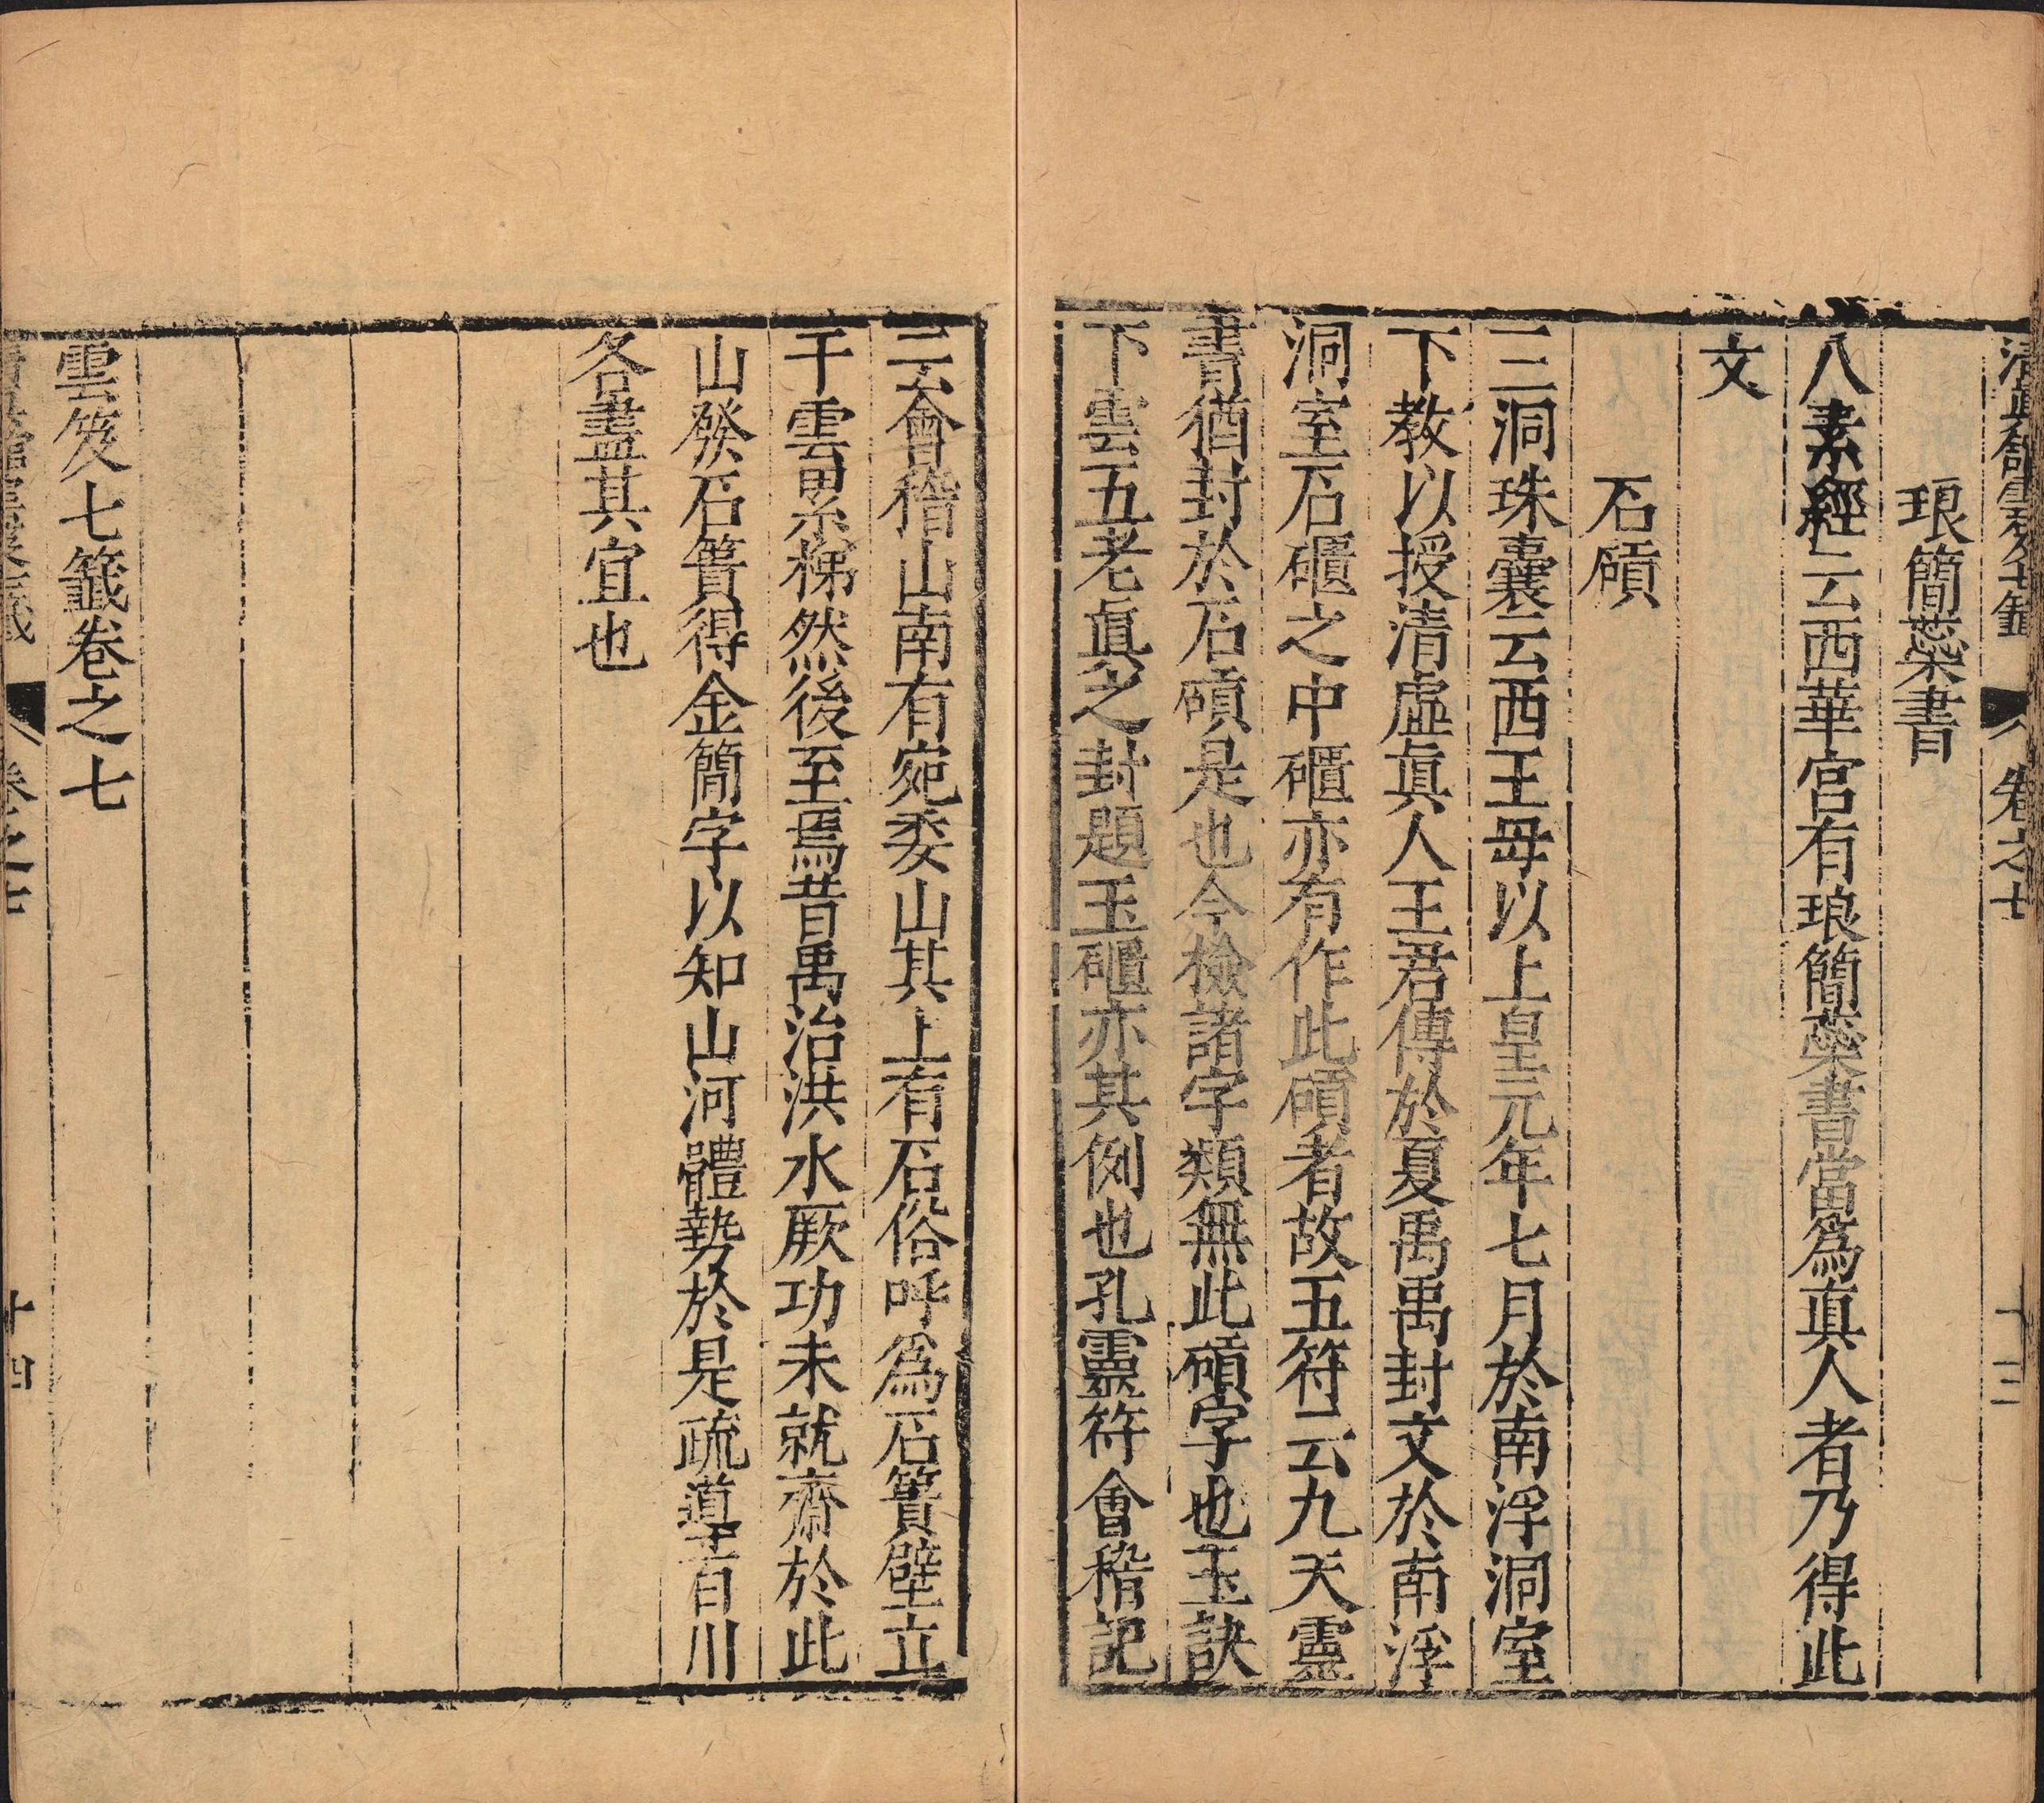 清眞館雲笈七籤 卷之七 十三
琅簡蘂書
八素經云西華宮有琅簡蘂書當爲真人者乃得此
文
石碩
三洞珠囊云西王母以上皇元年七月於南浮洞室
下教以授清虛眞人王君傳於夏禹禹封文於南浮
洞室石䃶之中䃶亦有作此碩者故五符云九天靈
書猶封於石碩是也今檢諸字類無此碩字也玉訣
下雲五老眞之封題玉䃶亦其例也孔靈符會稽記
云會稽山南有宛委山其上有石俗呼爲石簣壁立
干雲累梯然後至焉昔禹治洪水厥功未就齋於此
山發石簣得金簡字以知山河體勢於是疏導百川
各盡其宜也
雲笈七籤卷之七
卷之七 十四